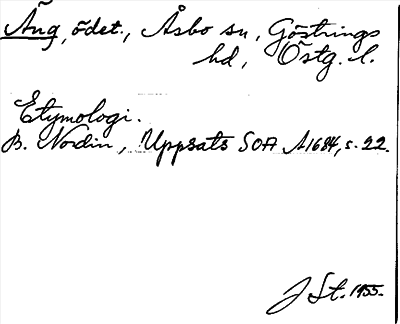 Äng, ödet., Åsbo sn, Göstrings
hd, Östg. l.
Etymologi.
B. Nordin, Uppsats SOA A1684, s. 22.
J St. 1955.